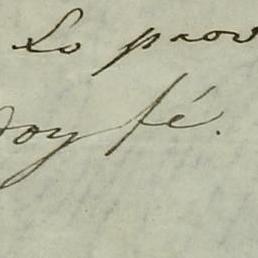 Lo prov
doy fé.